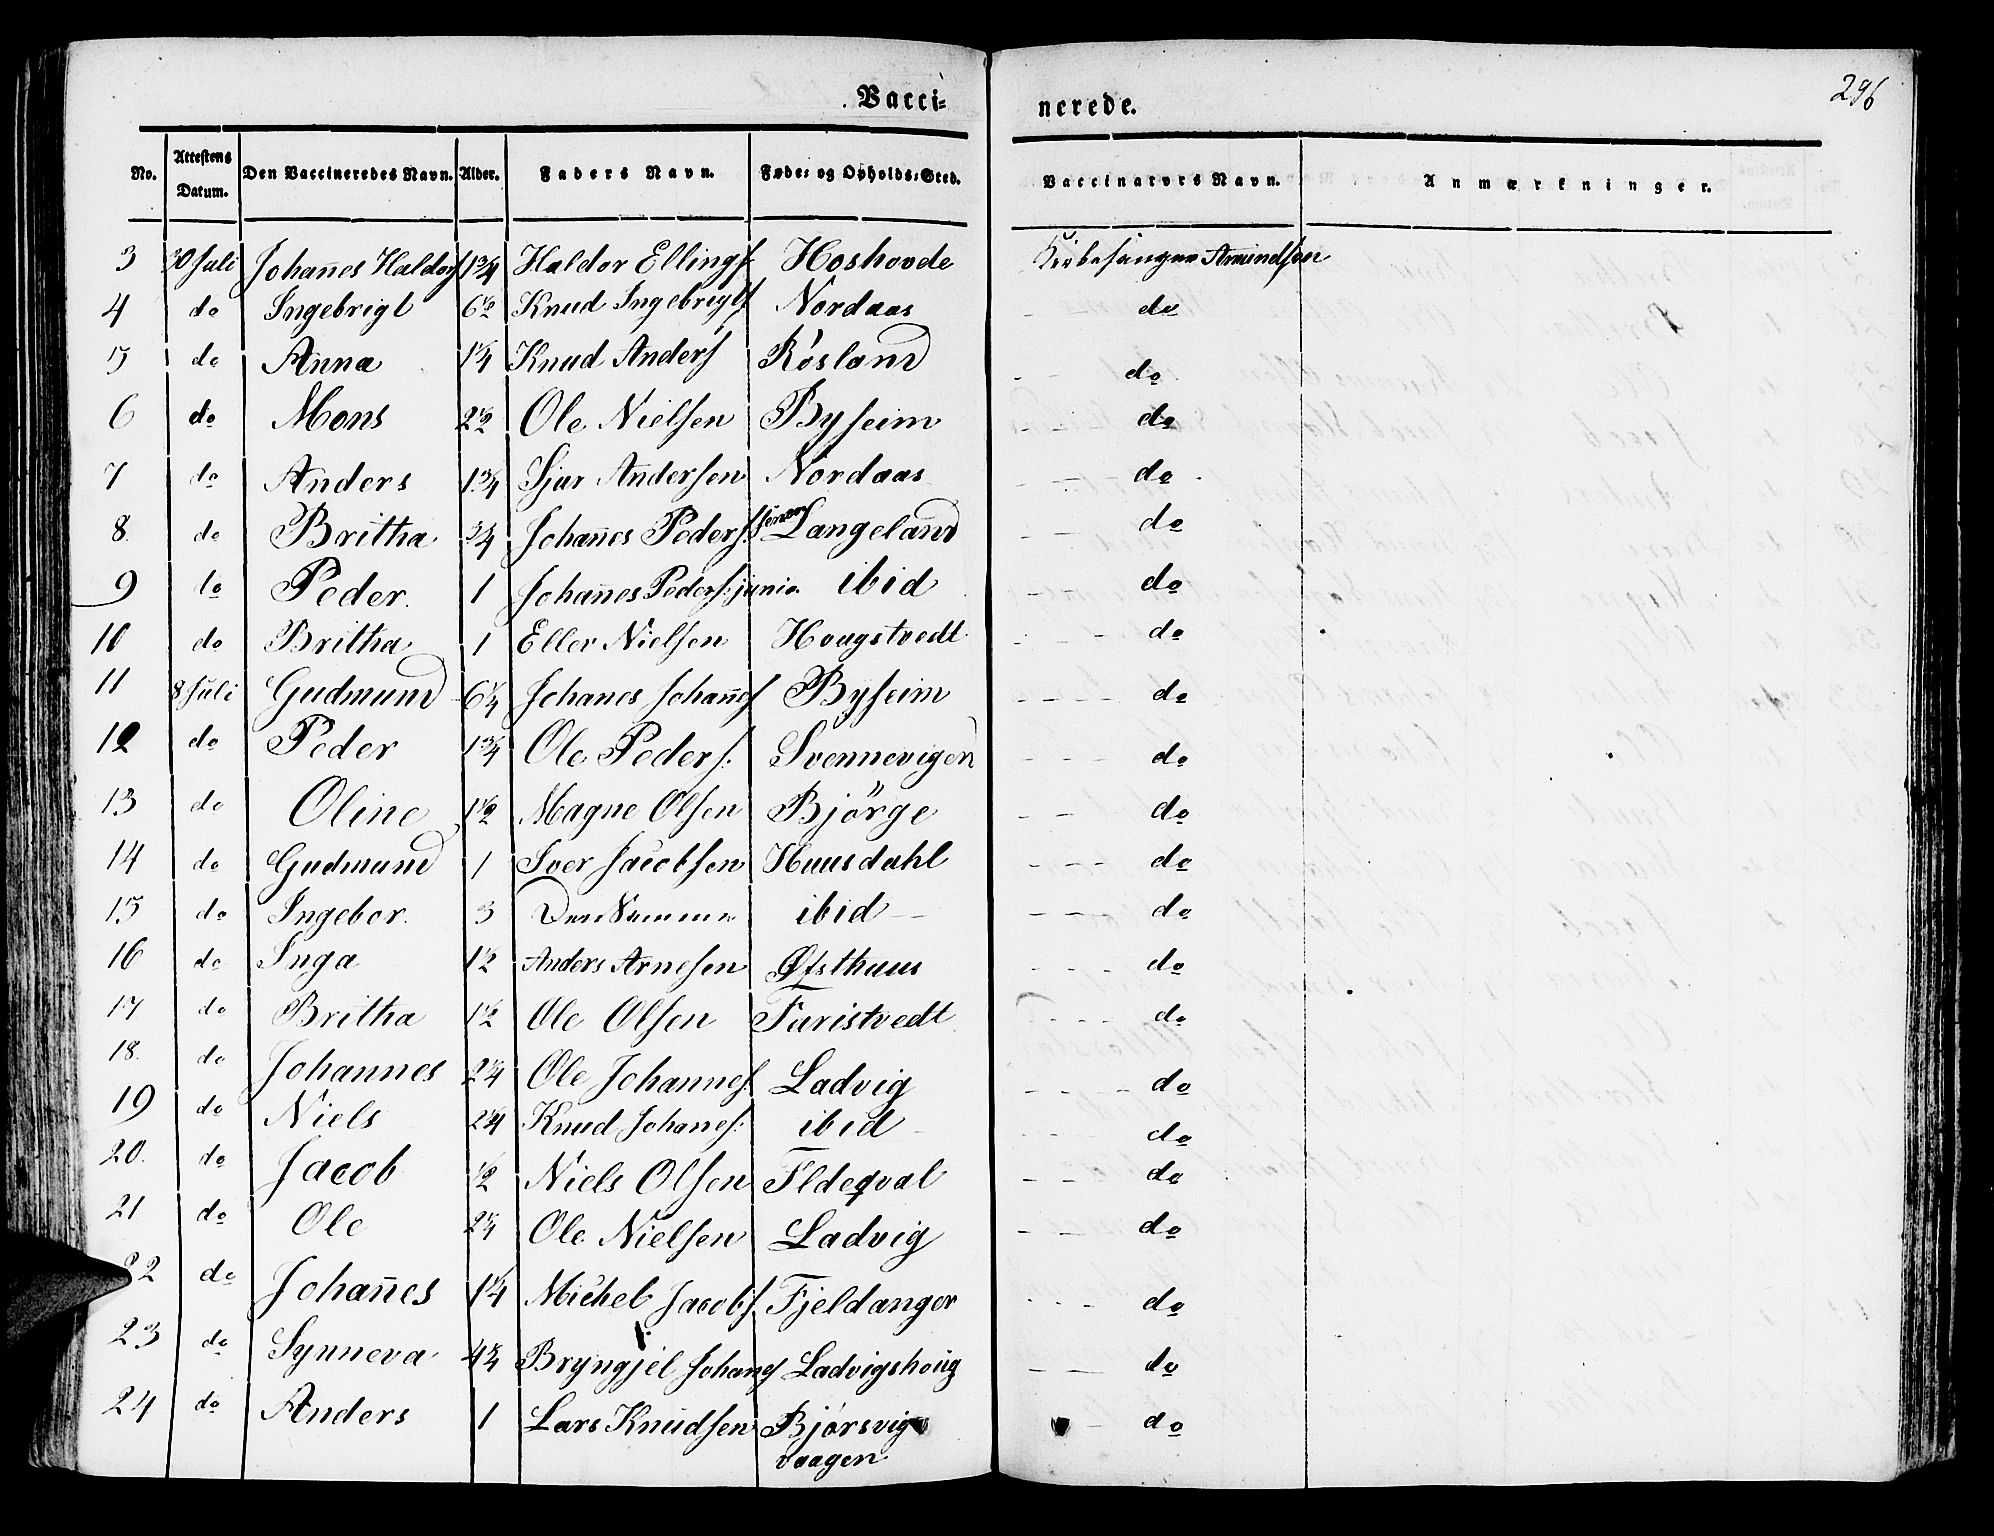 Vacci=
nerede.
296
No. Attestens Datum. Den Vaccineredes Navn. Alder. Faders Navn. Føde= og Opholds=Sted. Vaccinators Navn. Anmærkninger.
3 30 Juli Johan̄es Haldorſ 1 3/4 Haldor Ellingſ Hoshovde Amundſen
4 do Ingebrigt 6 1/2 Knud Ingebrigtſ Nordaas do
5 do Anna 1 1/4 Knud Anderſ Røsland do
6 do Mons 2 1/2 Ole Nielſen Byſeim do
7 do Anders 1 3/4 Sjur Anderſen Nordaas do
8. do Britha 3/4 Johan̄es Pederſ: ſenior Langeland do
9 do Peder. 1 Johan̄es Pederſ: junio. ibid do
10 do Britha 1 Eller Nielſen Hougstvedt do
11 8 Juli Gudmund 6 1/4 Johanes Johan̄eſ Byſeim do
12 do Peder 1 3/4 Ole Pederſ: Svennevigen do
13 do Oline 1 1/2 Magne Olſen Bjørge do
14 do Gudmund 1 Iver Jacobſen Huusdahl do
15 do Ingebor. 3 Den Samme ibid do
16 do Inga 1 1/2 Anders Arneſen Øfsthuus do
17 do Britha 1 1/2 Ole Olſen Faristvedt do
18. do Johannes 2 1/4 Ole Johanneſ: Ladvig do
19 do Niels 2 1/4 Knud Johaneſ: ibid do
20. do Jacob 1/2 Niels Olſen do
21 do Ole 2 1/4 Ole Nielſen Ladvig do
22 do Johan̄es 1 1/4 Michel Jacobſ. Fjeldanger do
23 do Synneva 4 3/4 Bryngjel Johaneſ Ladvigshoug do
24 do Anders 1 Lars Knudſen Bjørsvig do
vaagen